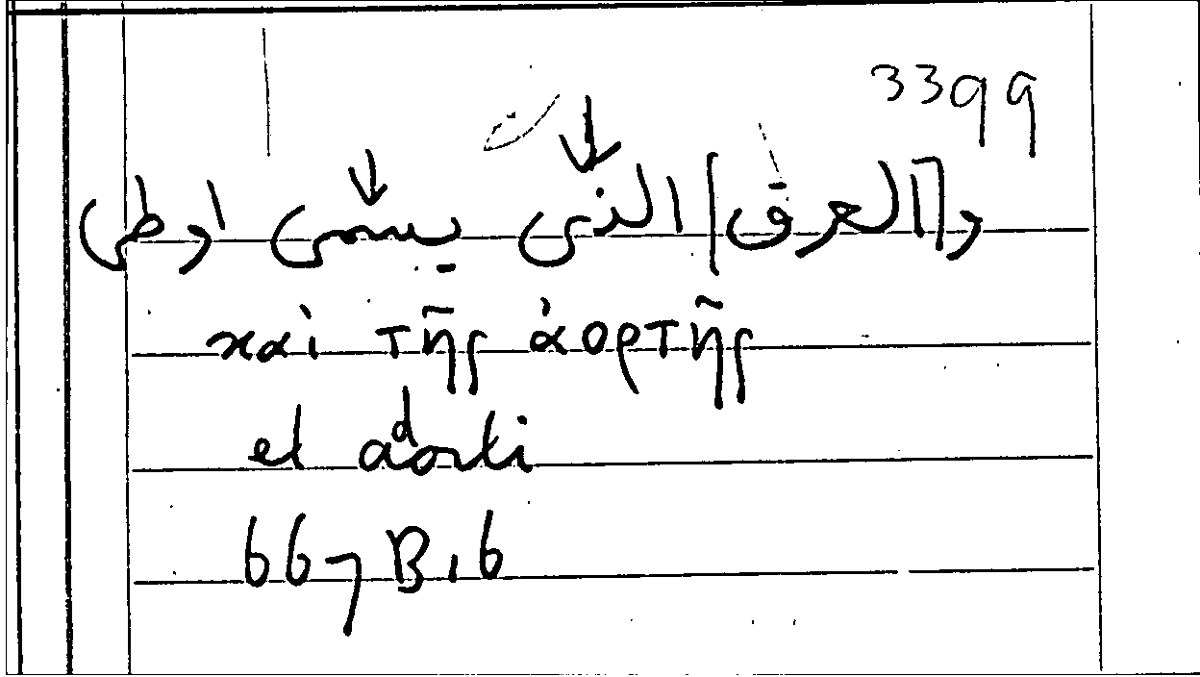 3399
و[العرق] الذى يسمى اورطى
καὶ τῆς ἀορτῆς
et adorti
667 B 16